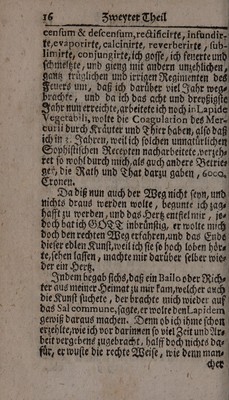 16 Zweyter Theil
censum & descensum, rectificirte, infundir-
te, evaporirte, calcinirte, reverberirte, sub-
limirte, conjungirte, ich gosse, ich feuerte und
schmeltzte, und gieng mit andern unzehlichen,
gantz trüglichen und irrigen Regimenten des
Feuers um, daß ich darüber viel Jahr weg-
brachte, und da ich das acht und dreyßigste
Jahr nun erreichte, arbeitete ich noch in Lapide
Vegetabili, wolte die Coagulation des Mer-
curii durch Kräuter und Thier haben, also daß
ich in Jahren, weil ich solchen unnatürlichen
Sophistischen Recepten nacharbeitete, verzeh-
ret so wohl durch mich, als auch andere Betrie-
ger, die Rath und That darzu gaben, 6000.
Cronen.
Da diß nun auch der Weg nicht seyn, und
nichts draus werden wolte, begunte ich zag-
hafft zu werden, und das Hertz entfiel mir, je-
doch bat ich GOTT inbrünstig, er wolte mich
doch den rechten Weg erfahren, und das Ende
dieser edlen Kunst, weil ich sie so hoch loben hör-
te, sehen lassen, machte mir darüber selber wie-
der ein Hertz.
Indem begab sichs, daß ein Ballo oder Rich-
ter aus meiner Heimat zu mir kam, welcher auch
die Kunst suchete, der brachte mich wieder auf
das Sal commune, sagte, er wolte den Lapidem
gewiß daraus machen. Denn ob ich ihme schon
erzehlte, wie ich vor darinnen so viel Zeit und Ar-
beit vergebens zugebracht, halff doch nichts da-
für, er wuste die rechte Weise, wie denn man-
cher